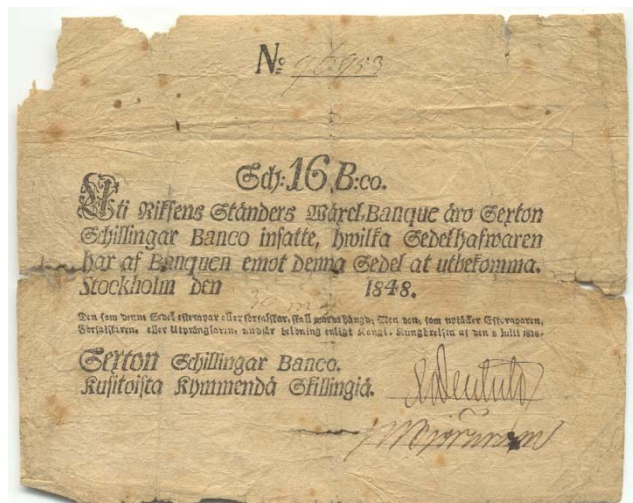 No
Sch: 16 B:co.
Uti Riksens Ständers Wäxel-Banque äro Sexton
Schillingar Banco insatte, hwilka Sedelhafwaren
har af Banquen emot denna Sedel at utbekomma.
Stockholm den 1848.
Den som denna Sedel eftergör eller förfalskar, skall warda hängd; Men den, som uptäcker Eftergöraren,
Förfalskaren, eller Utprånglaren, undfår belöning enligt Kongl. Kungörelsen af den 8 Julii 1818.
Sexton Schillingar Banco.
Kusitoista Kymmendä Skillingiä.